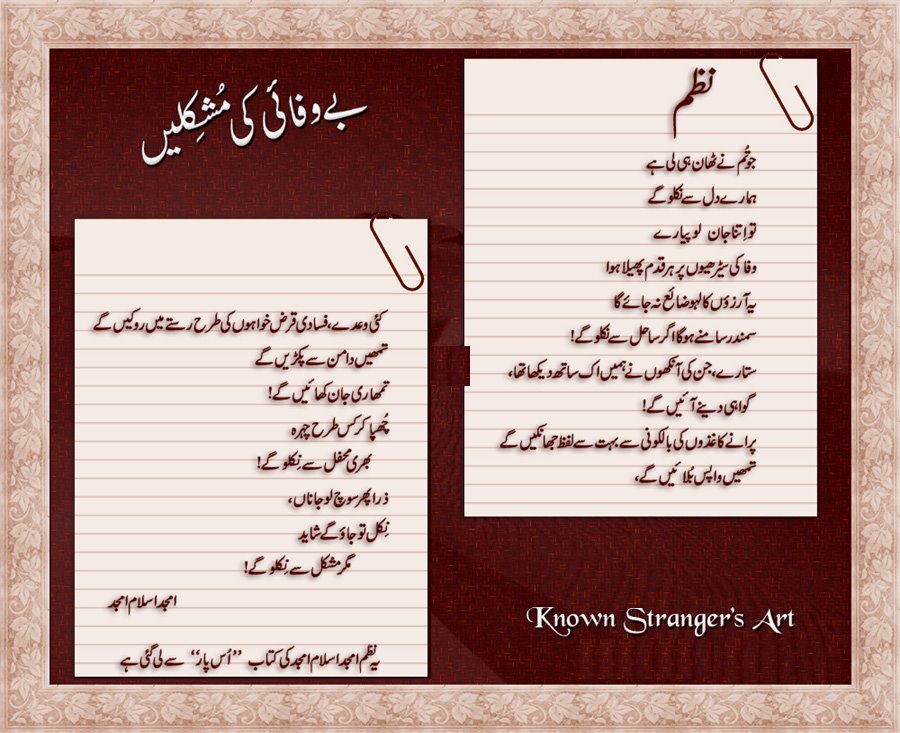 بے وفائی کی مُشکِلیں
نظم
جو تُم نے ٹھان ہی لی ہے
ہمارے دل سے نکلو گے
تو اِتنا جان لو پیارے
وفا کی سیڑھیوں پر ہر قدم پھیلا ہوا
یہ آرزوؤں کا لہو ضائع نہ جائے گا
سمندر سامنے ہو گا اگر ساحل سے نکلو گے!
ستارے، جن کی آنکھوں نے ہمیں اک ساتھ دیکھا تھا،
گواہی دینے آئیں گے!
پرانے کاغذوں کی بالکونی سے بہت سے لفظ جھانکیں گے
تمھیں واپس بُلائیں گے،
کئی وعدے، فسادی قرض خواہوں کی طرح رستے میں روکیں گے
تمھیں دامن سے پکڑیں گے
تمھاری جان کھائیں گے!
چُھپا کر کس طرح چہرہ
بھری محفل سے نِکلو گے!
ذرا پھر سوچ لو جاناں،
نِکل تو جاؤ گے شاید
مگر مشکل سے نِکلو گے!
امجد اسلام امجد
یہ نظم امجد اسلام امجد کی کتاب ”اُس پار“ سے لی گئی ہے
Known Stranger's Art